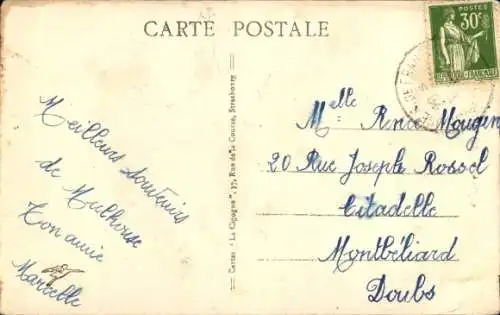 CARTE POSTALE
POSTES
30c
Meilleurs souvenirs
de Mulhouse
Ton amie
Marcelle
Cartes "La Cigogne", 37, Rue de la Course, Strasbourg
Melle Renée Mougin
20 Rue Joseph Rossel
Citadelle
Montbéliard
Doubs